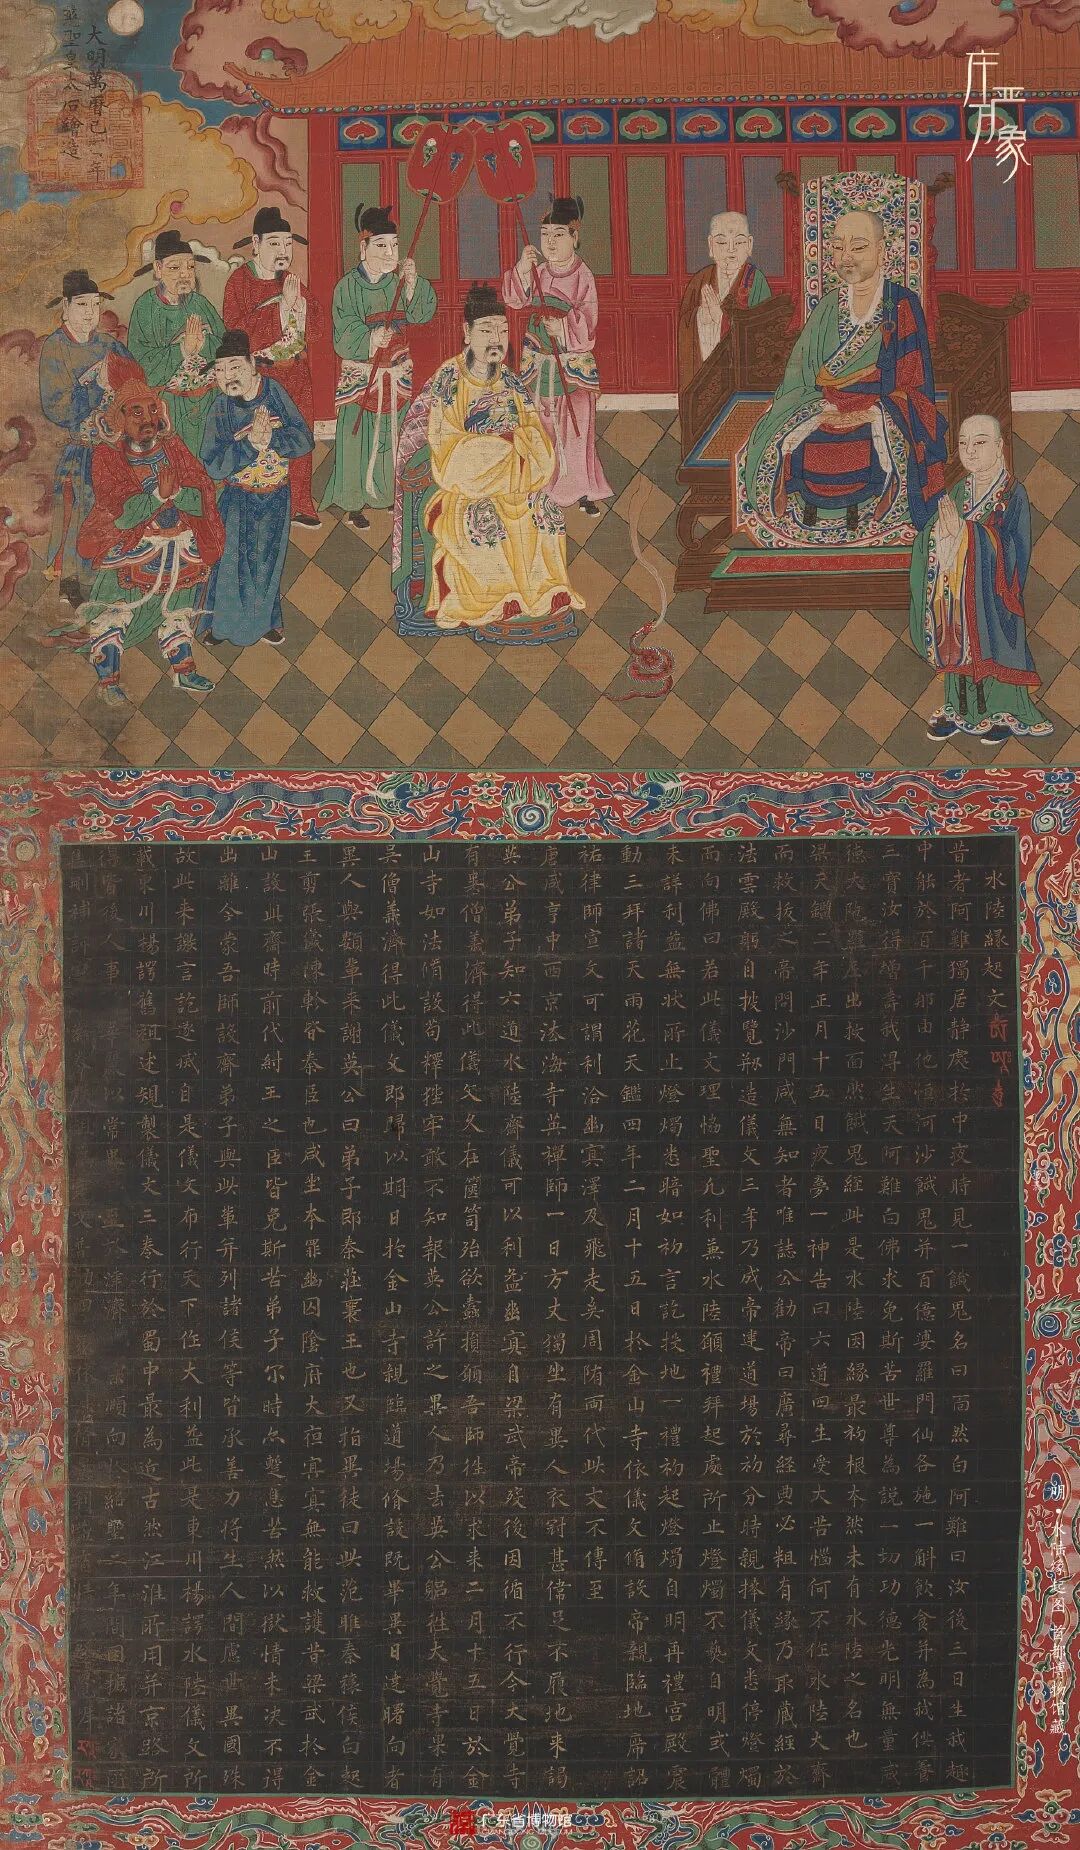 庄严万象
大明萬曆己酉年
慈聖皇太后繪造
水陸緣起文
昔者阿難獨居靜處於中夜時見一餓鬼名曰面然白阿難曰汝後三日生我趣
中能於百千那由他恒河沙餓鬼并百億婆羅門仙各施一斛飲食并為我供養
三寶汝得增壽我得生天阿難白佛求免斯苦世尊為說一切功德光明無量威
德大陀羅尼出救面然餓鬼經此是水陸因緣最初根本然未有水陸之名也
梁天鑑二年正月十五日夜夢一神告曰六道四生受大苦惱何不作水陸大齋
而救拔之帝問沙門咸無知者唯誌公勸帝曰廣尋經典必粗有緣乃取藏經於
法雲殿躬自披覽刱造儀文三年乃成帝建道場於初分時親捧儀文悉停燈燭
而向佛曰若此儀文理恊聖凡利兼水陸願禮拜起處所止燈燭不爇自明或體
未詳利益無狀所止燈燭悉暗如初言訖投地一禮初起燈燭自明再禮宮殿震
動三拜諸天雨花天鑑四年二月十五日於金山寺依儀文脩設帝親臨地席詔
祐律師宣文可謂利洽幽冥澤及飛走矣周隋兩代此文不傳至
唐咸亨中西京法海寺英禪師一日方丈獨坐有異人衣冠甚偉足不履地來謁
英公弟子知六道水陸齋儀可以利益幽冥自梁武帝歿後因循不行今大覺寺
有吳僧義濟得此儀文久在篋笥殆欲蠹損願吾師往以求來二月十五日於金
山寺如法脩設苟釋狴牢敢不知報英公許之異人乃去英公躬往大覺寺果有
吳僧義濟得此儀文即歸以期日於金山寺親臨道場脩設既畢異日達曙向者
異人與類輩來謝英公曰弟子即秦莊襄王也又指異徒曰此范雎秦穰侯白起
王翦張儀陳軫皆秦臣也咸坐本罪幽囚陰府大夜冥冥無能救護昔梁武於金
山設此齋時前代紂王之臣皆免斯苦弟子尔時亦蹔息苦然以獄情未決不得
出離今蒙吾師設齋弟子與此輩并列諸侯等皆承善力將生人間慮世異國殊
故此來謝言訖遂滅自是儀文布行天下作大利益此是東川楊諤水陸儀文所
載東川楊諤舊祖述規製儀文三卷行於蜀中最為近古然江淮所用并京路所
得皆後人事
明·水陸缘起图 首都博物馆藏
广东省博物馆
GUANGDONG MUSEUM